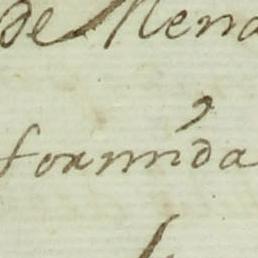 de Mend
formída